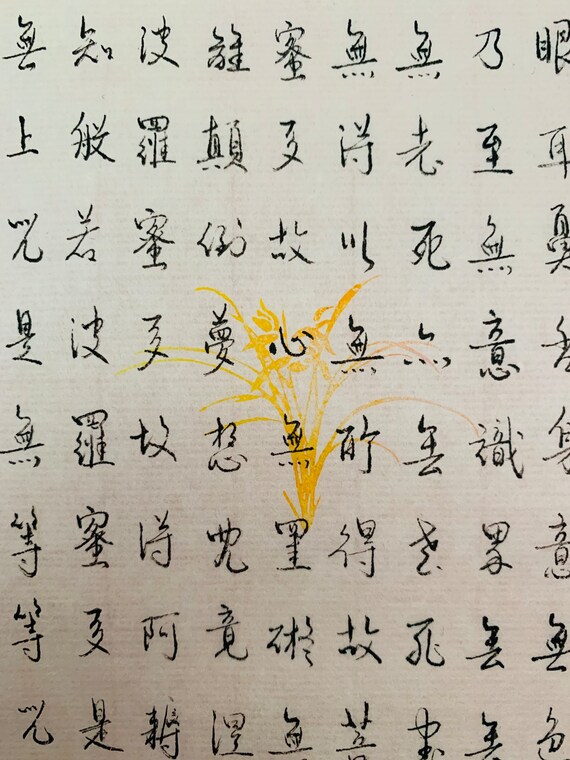 眼耳鼻舌身意無色
乃至無意識界無無
無老死亦無老死盡
無得以無所得故菩
蜜多故心無罣礙無
離顛倒夢想究竟涅
波羅蜜多故得阿耨
知般若波羅蜜多是
無上咒是無等等咒